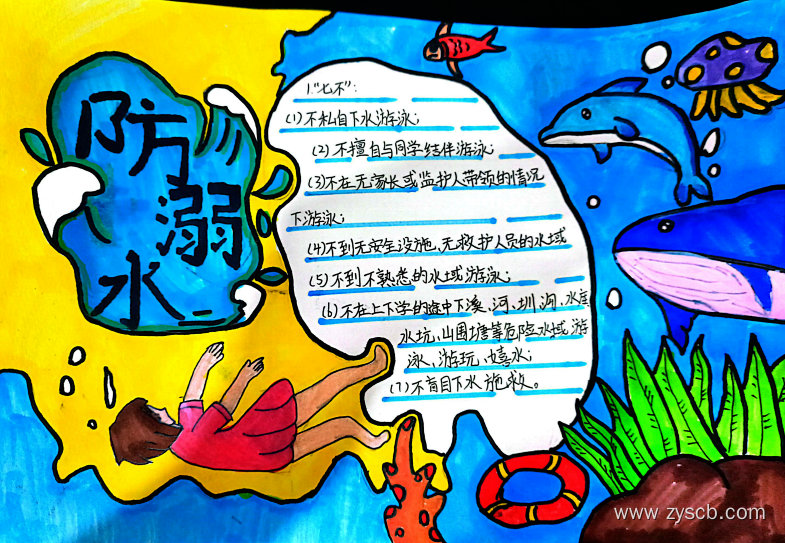 防
溺
水
1."七不":
(1)不私自下水游泳;
(2)不擅自与同学结伴游泳;
(3)不在无家长或监护人带领的情况
下游泳;
(4)不到无安全设施、无救护人员的水域
(5)不到不熟悉的水域游泳;
(6)不在上下学的途中下溪、河、圳、沟、水库
水坑、山围塘等危险水域游
泳、游玩、嬉水;
(7)不盲目下水施救。
www.zyscb.com